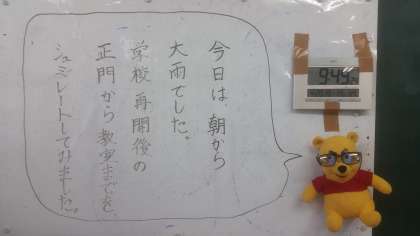 今日は、朝から
大雨でした。
学校再開後の
正門から教室までを、
シュミレートしてみました。
9:45